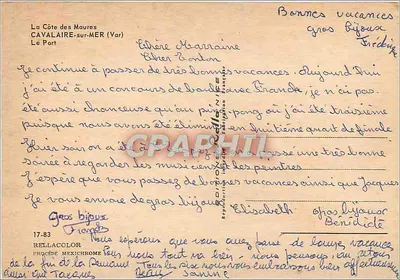 La Côte des Maures
CAVALAIRE-sur-MER (Var)
Le Port
Bonnes vacances
gros bijoux
Frédérique
Chère Marraine
Cher Tonton
Je continue à passer de très bonnes vacances. Aujourd'hui
j'ai été à un concours de boules avec Franck, je n'ai pas
été aussi chanceuse qu'au ping pong où j'ai été troisième
puisque nous avons été éliminés en huitième quart de finale
Hier soir on a été à passé une très bonne
soirée à regarder des musiciens des peintres.
J'espère que vous passez de bonnes vacances ainsi que Jacques
Je vous envoie de gros bijoux
Elisabeth
gros bijoux
Bénédicte
Gros bijoux
François
17-83
BELLACOLOR
PROCÉDÉ MEXICHROME
Nous espérons que vous avez passé de bonnes vacances
Pour nous tout va bien, nous pensons au retour
de la fin de la semaine. Tous les six nous vous embrassons bien affectueusement
ainsi que Jacques
CPAPHIL